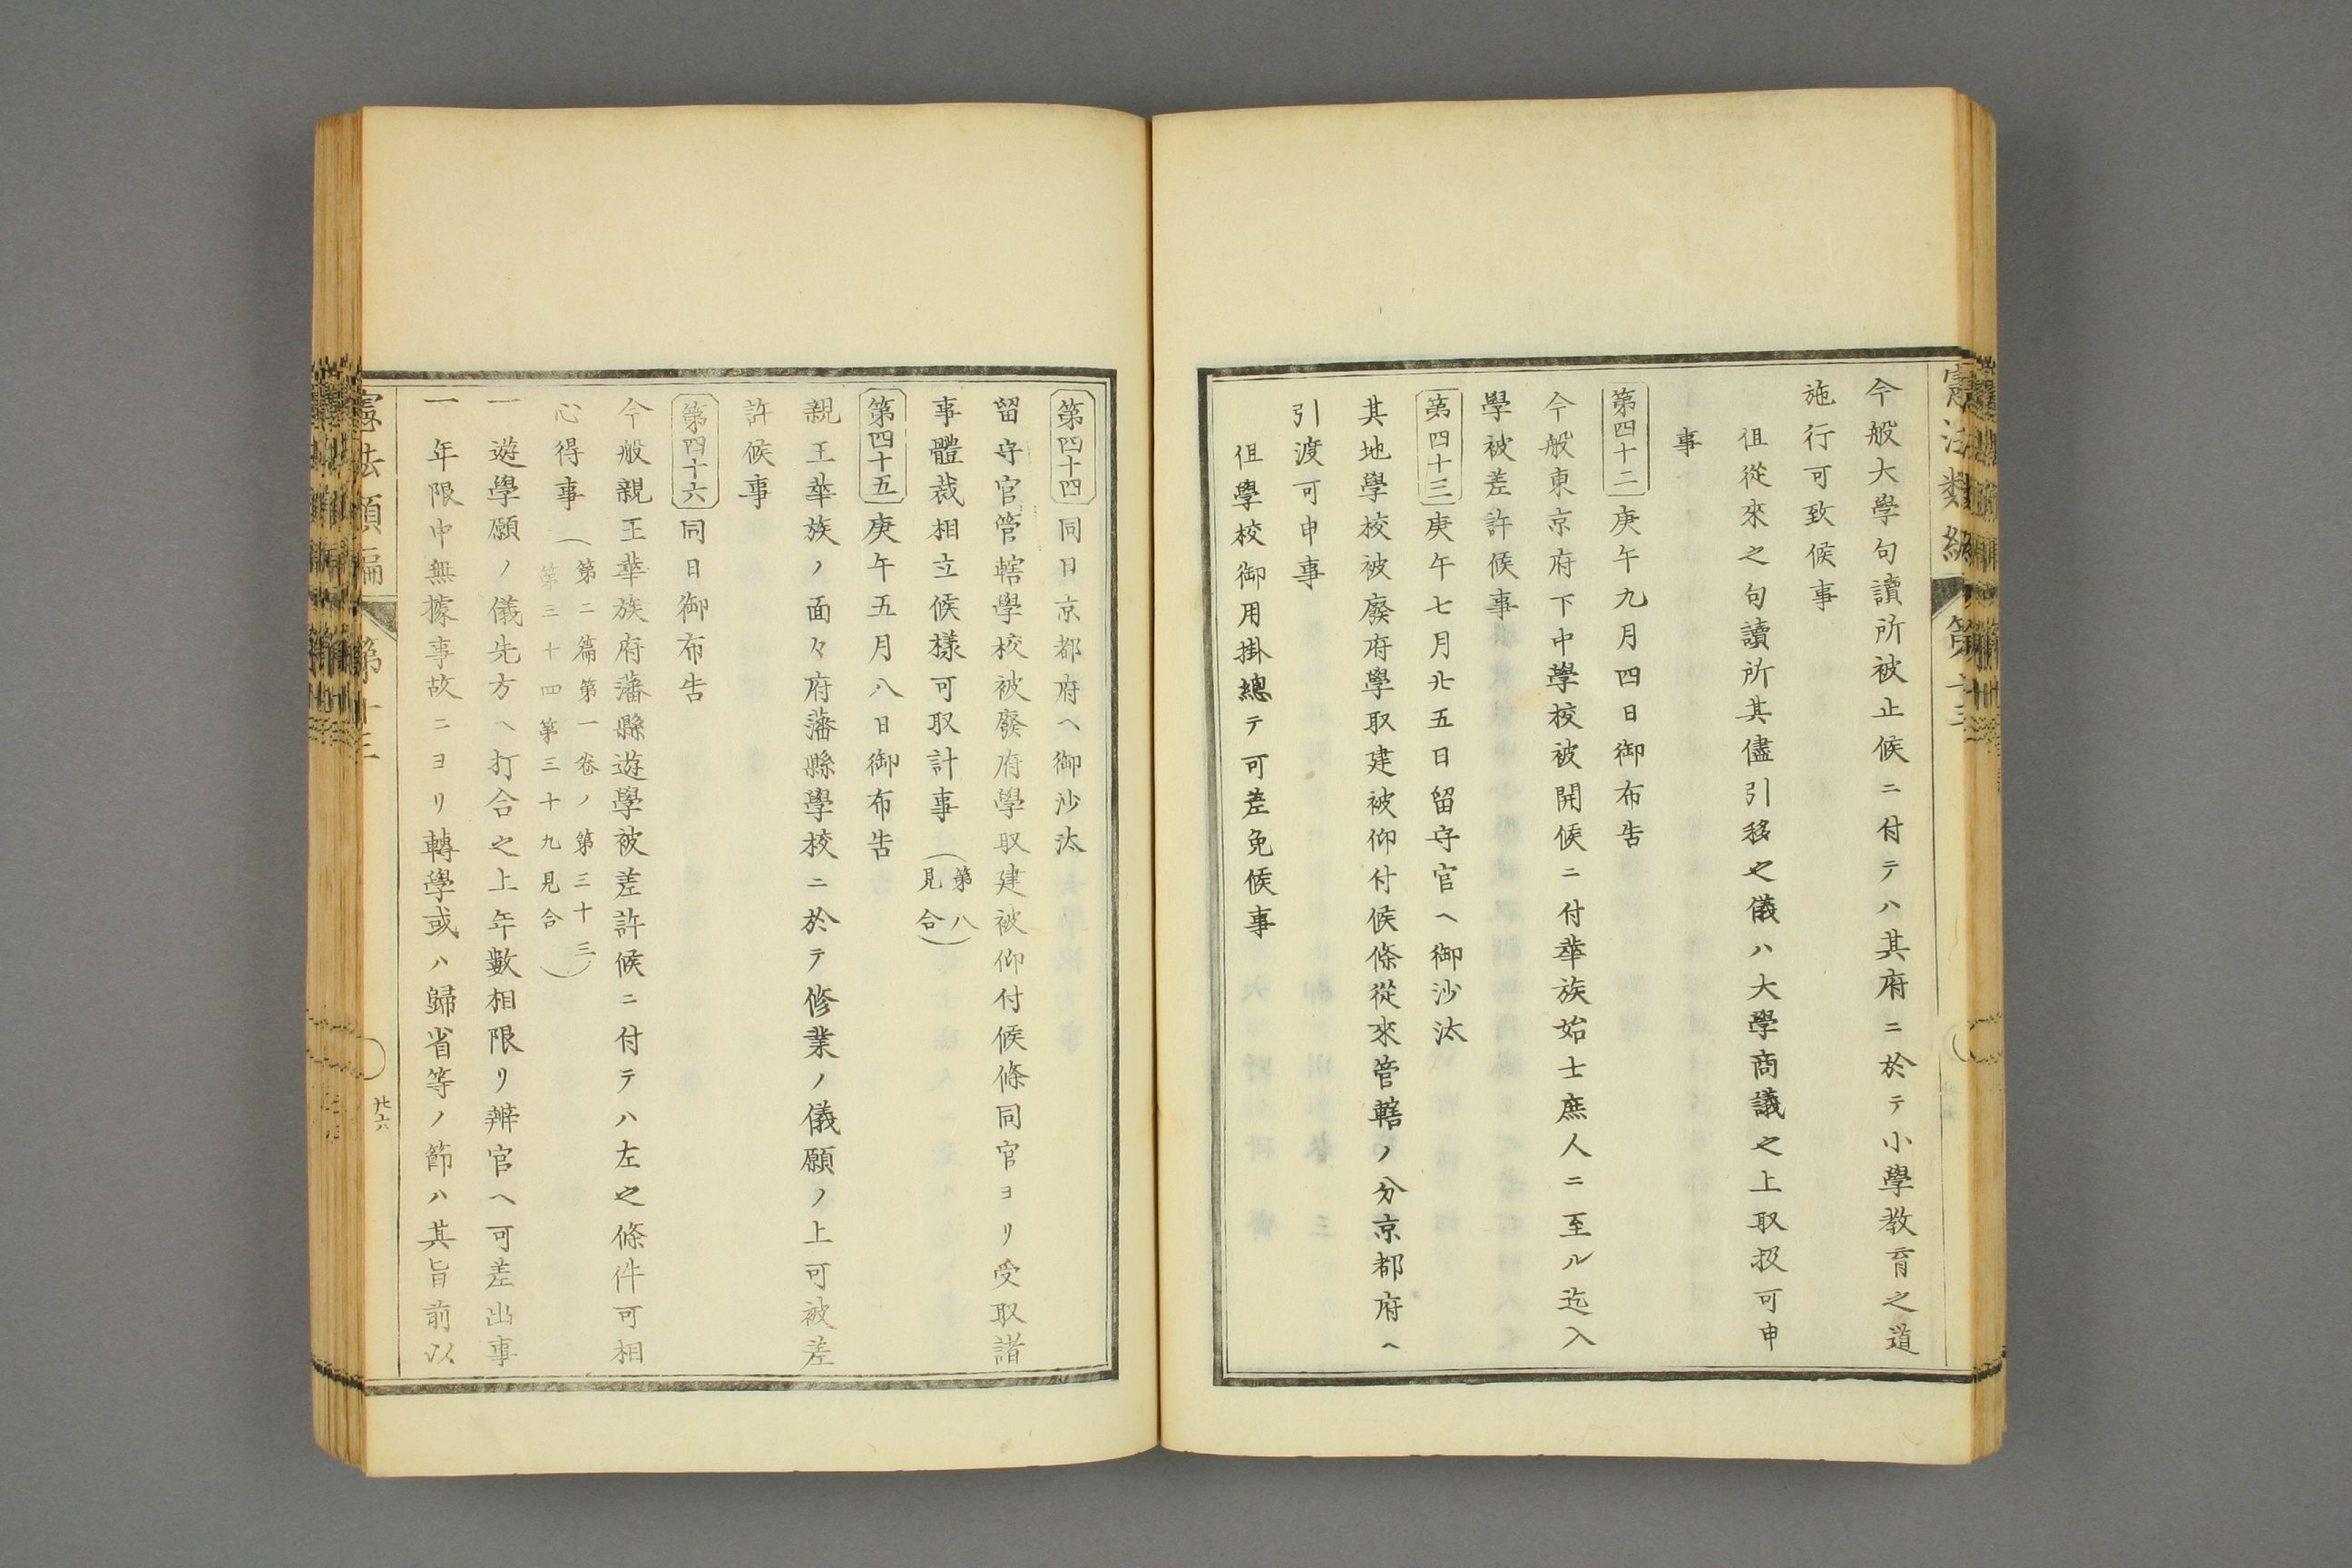 今般大學句讀所被止候ニ付テハ其府ニ於テ小學教育之道
施行可致候事
但從來之句讀所其儘引移之儀ハ大學商議之上取扱可申
事
第四十二 庚午九月四日御布告
今般東京府下中學校被開候ニ付華族始士庶人ニ至ル迄入
學被差許候事
第四十三 庚午七月廿五日留守官ヘ御沙汰
其地學校被廢府學取建被仰付候條從來管轄ノ分京都府ヘ
引渡可申事
但學校御用掛總テ可差免候事
第四十四 同日京都府ヘ御沙汰
留守官管轄學校被廢府學取建被仰付候條同官ヨリ受取諸
事體裁相立候樣可取計事(第八見合)
第四十五 庚午五月八日御布告
親王華族ノ面々府藩縣學校ニ於テ修業ノ儀願ノ上可被差
許候事
第四十六 同日御布告
今般親王華族府藩縣遊學被差許候ニ付テハ左之條件可相
心得事(第二篇第一卷ノ第三十三
第三十四第三十九見合)
一遊學願ノ儀先方ヘ打合之上年數相限リ辨官ヘ可差出事
一年限中無據事故ニヨリ轉學或ハ歸省等ノ節ハ其旨前以
憲法類編 第十三
廿六